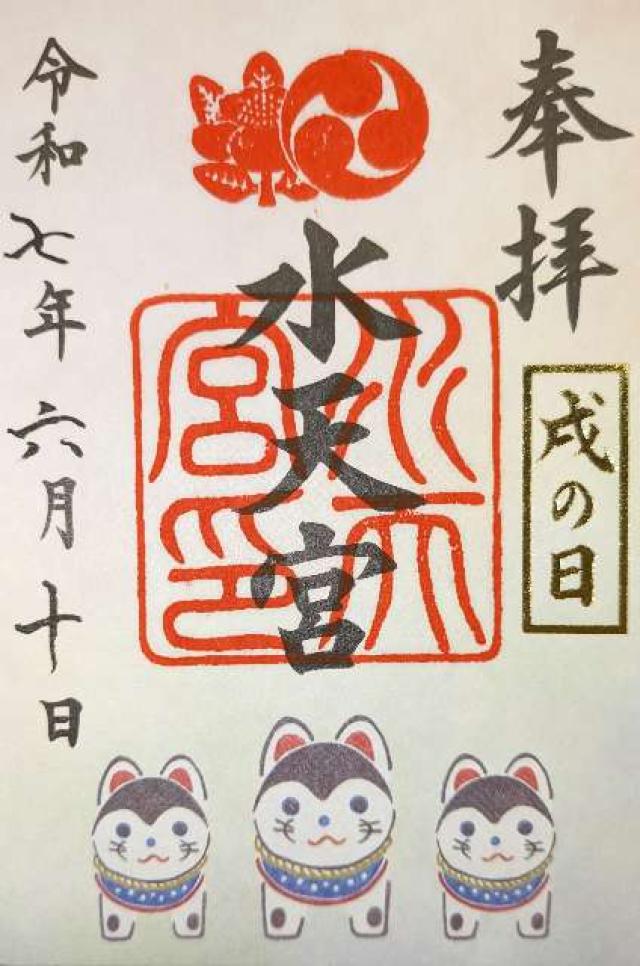 奉拝
戌の日
水天宮
水天宮印
令和七年六月十日